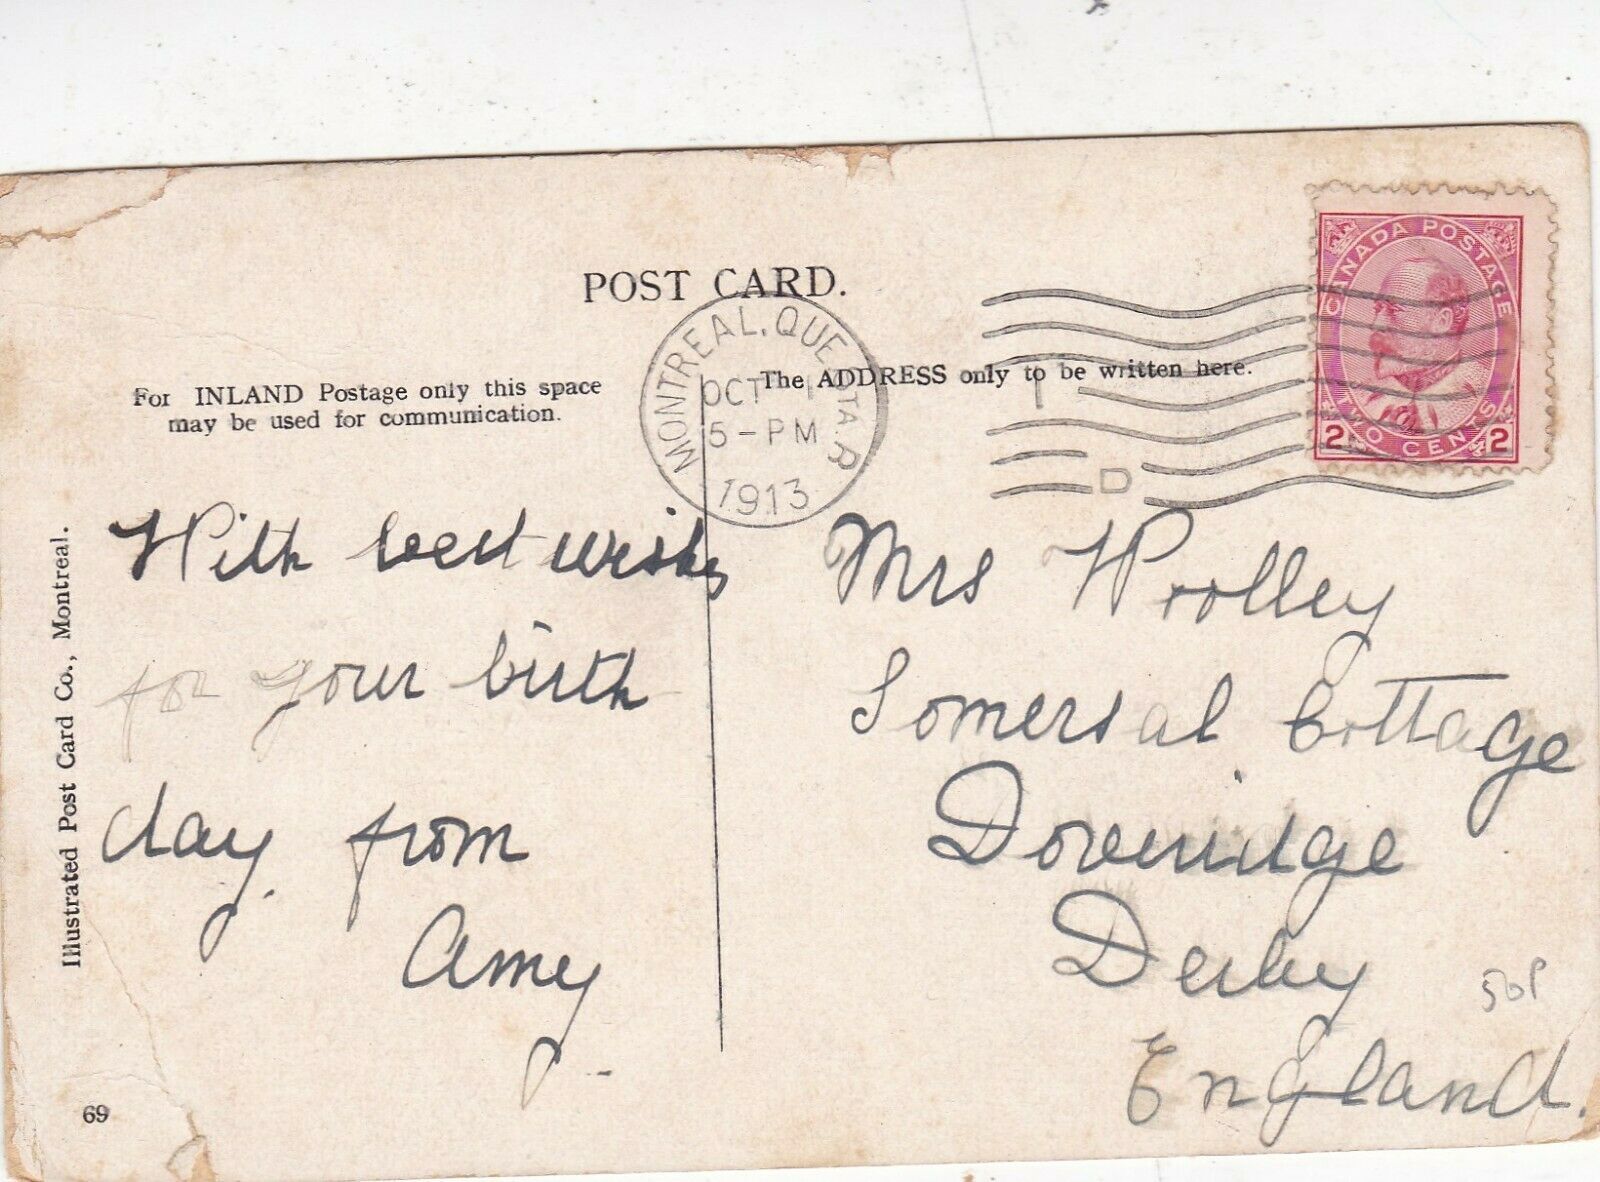 POST CARD.
CANADA POSTAGE
2 TWO CENTS 2
MONTREAL, QUE STA. R
OCT 1
5-PM
1913
1
D
For INLAND Postage only this space
may be used for communication.
The ADDRESS only to be written here.
With best wishes
for your birth
day. from
Amy
Mrs Woolley
Somersal Cottage
Doveridge
Derby
England.
50P
Illustrated Post Card Co., Montreal.
69